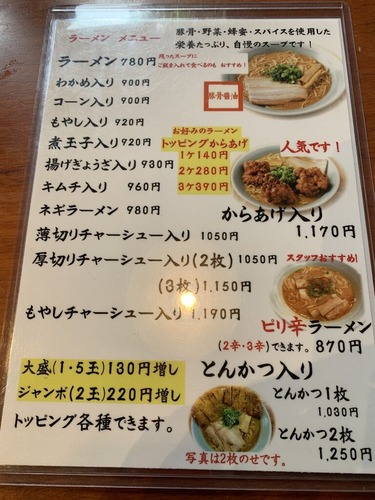 ラーメン メニュー
豚骨・野菜・蜂蜜・スパイスを使用した
栄養たっぷり、自慢のスープです！
ラーメン 780円
残ったスープに
ご飯を入れて食べるのも おすすめ！
わかめ入り 900円
コーン入り 900円
もやし入り 920円
煮玉子入り 920円
揚げぎょうざ入り 930円
キムチ入り 960円
ネギラーメン 980円
豚骨醤油
お好みのラーメン
トッピングからあげ
1ケ140円
2ケ280円
3ケ390円
人気です！
からあげ入り
1,170円
薄切りチャーシュー入り 1050円
厚切りチャーシュー入り(2枚) 1050円
(3枚) 1,150円
もやしチャーシュー入り 1,190円
スタッフおすすめ!
ピリ辛ラーメン
(2辛・3辛)できます。 870円
大盛(1・5玉)130円増し
ジャンボ(2玉)220円増し
トッピング各種できます。
とんかつ入り
とんかつ1枚
1,030円
とんかつ2枚
1,250円
写真は2枚のせです。